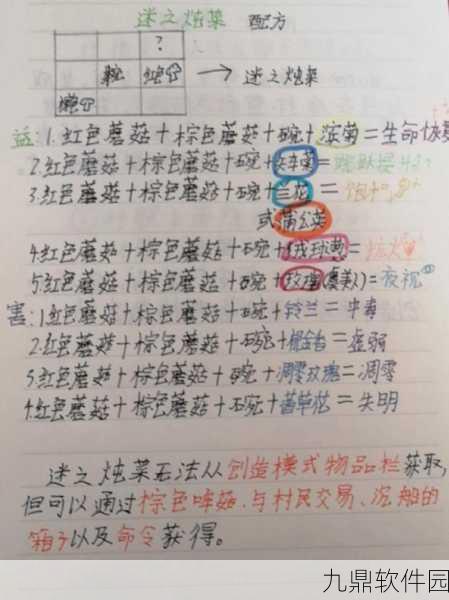 迷之炖菜 配方
?
碗 红 → 迷之炖菜
棕
益:1.红色蘑菇+棕色蘑菇+碗+滨菊=生命恢复
2.红色蘑菇+棕色蘑菇+碗+矢车菊=跳跃提
3.红色蘑菇+棕色蘑菇+碗+兰花=饱和
或蒲公英
4.红色蘑菇+棕色蘑菇+碗+绒球葱=抗火
5.红色蘑菇+棕色蘑菇+碗+玫瑰(虞美人)=夜视
害:1.红色蘑菇+棕色蘑菇+碗+铃兰=中毒
2.红色蘑菇+棕色蘑菇+碗+郁金香=虚弱
3.红色蘑菇+棕色蘑菇+碗+凋零玫瑰=凋零
4.红色蘑菇+棕色蘑菇+碗+茜草花=失明
迷之炖菜无法从创造模式物品栏获取,
但可以通过棕色哞菇、与村民交易、沉船的
箱子以及命令获得。
九鼎软件园